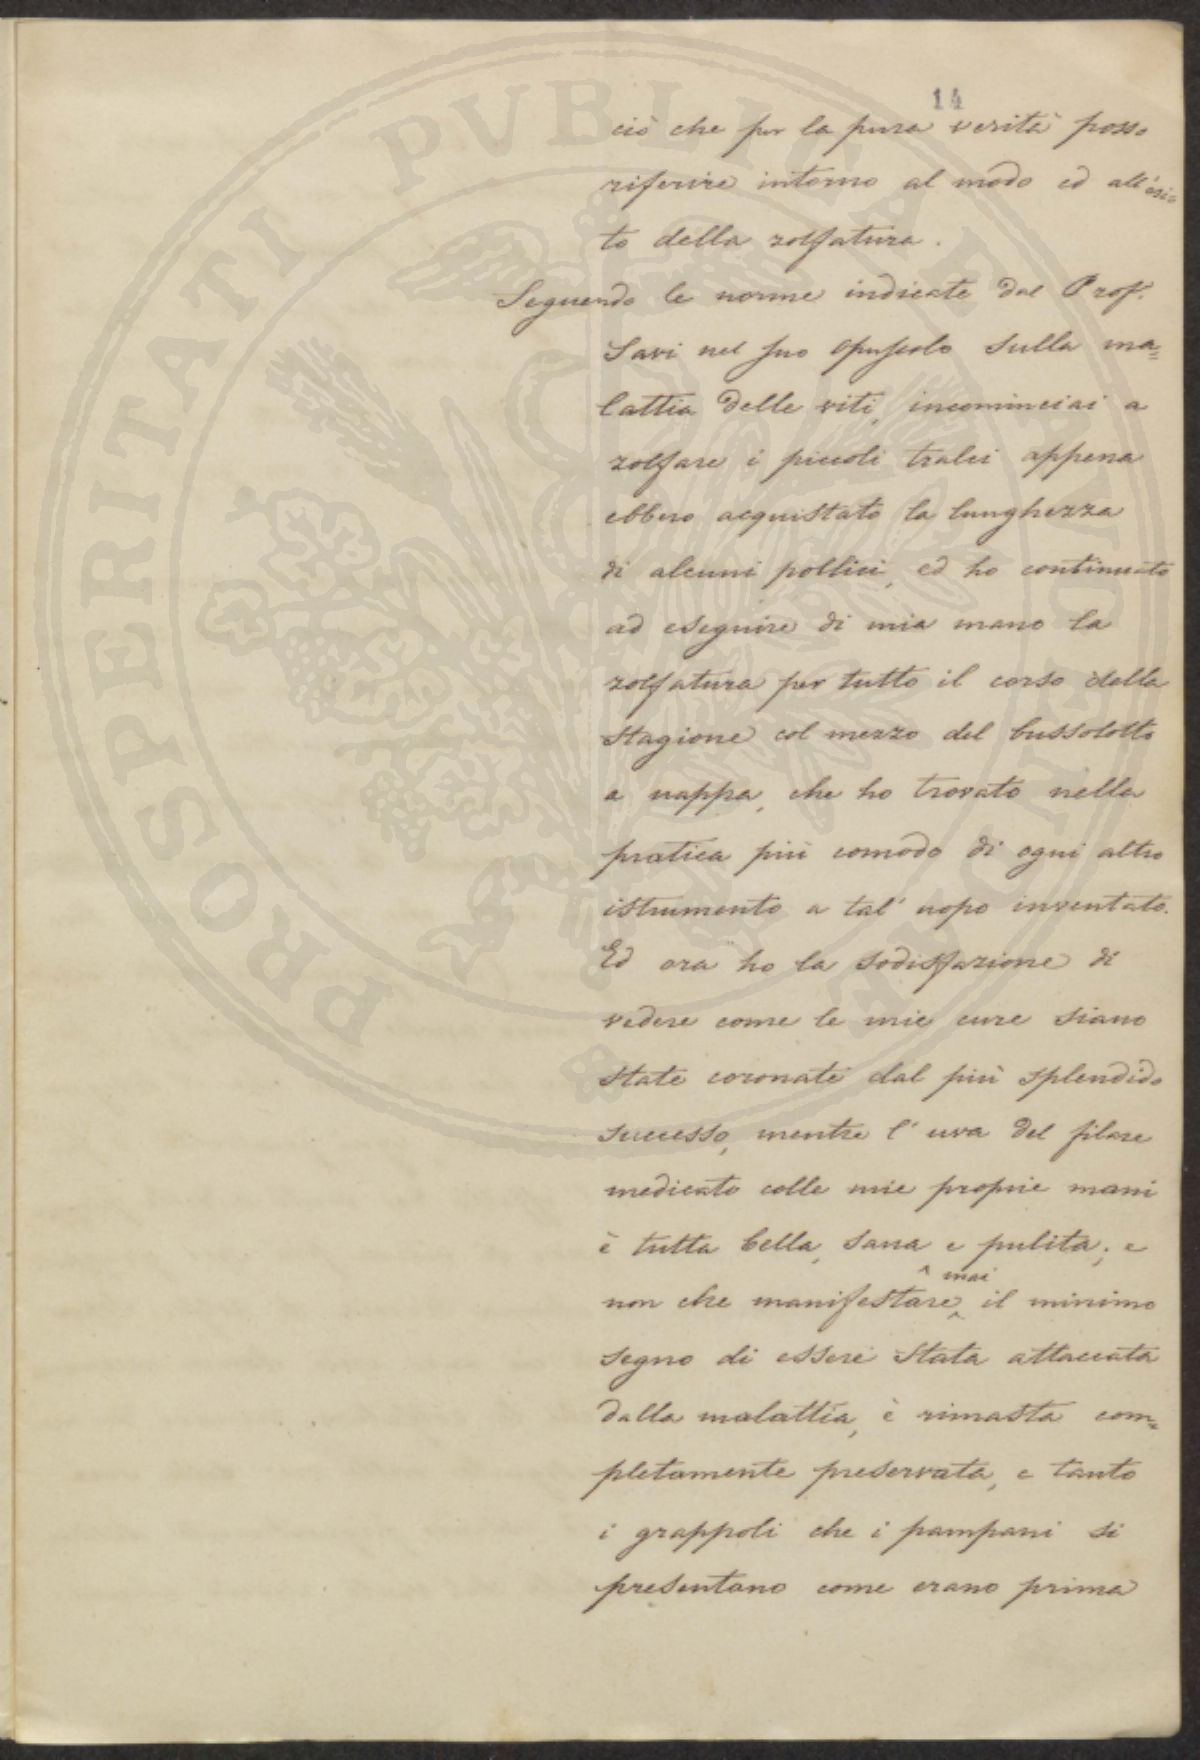 14
ciò che per la pura verità posso
riferire intorno al modo ed all'esi
to della zolfatura.
Seguendo le norme indicate dal Prof.
Savi nel suo opuscolo sulla ma=
lattia delle viti, incominciai a
zolfare i piccoli tralci appena
ebbero acquistato la lunghezza
di alcuni pollici, ed ho continuato
ad eseguire di mia mano la
zolfatura per tutto il corso della
stagione col mezzo del bussolotto
a nappa, che ho trovato nella
pratica più comodo di ogni altro
istrumento a tal' uopo inventato.
Ed ora ho la sodisfazione di
vedere come le mie cure siano
state coronate dal più splendido
successo, mentre l' uva del filare
medicato colle mie proprie mani
è tutta bella, sana e pulita; e
non che manifestare mai il minimo
segno di essere stata attaccata
dalla malattia, è rimasta com=
pletamente preservata, e tanto
i grappoli che i pampani si
presentano come erano prima
PROSPERITATI PVBLICAE AVGENDAE